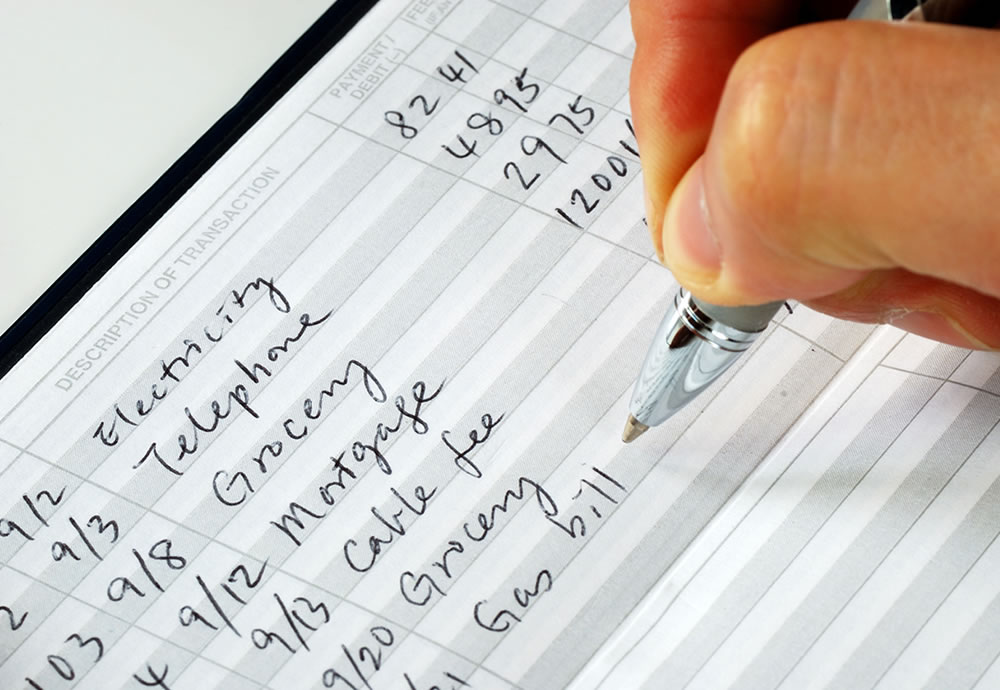 DESCRIPTION OF TRANSACTION PAYMENT/ DEBIT (–) FEE
9/2 Electricity 82 41
9/3 Telephone 48 95
9/8 Grocery 29 75
9/12 Mortgage 1200
9/13 Cable fee
9/20 Grocery
Gas bill